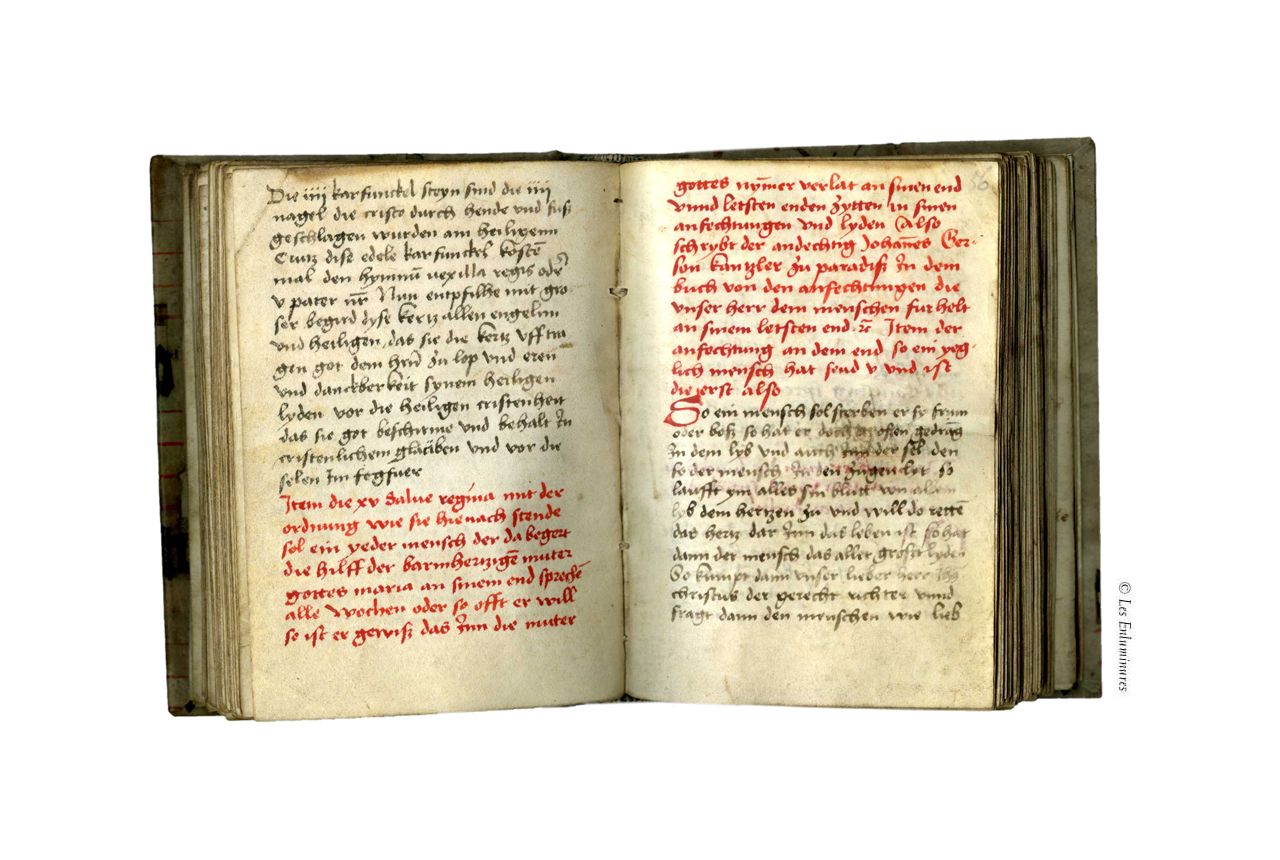 Die iiii karfunckel steyn sind die iiii
nagel die cristo durch hende vnd fuß
geschlagen wurden am heiligenn
Crutz dise edele karfunckel kostē
mal den hymnū vexilla regis oder
v pater nr̄ Nun entpfilhe mit gro
ser begird dyse kertz allen engelnn
vnd heiligen das sie die kertz vff tra
gen got dem hern̄ zu lop vnd eren
vnd danckberkeit synem heiligen
lyden vor die heiligen cristenheit
das sie got beschirme vnd behalt in
cristenlichem glauben vnd vor die
selen im fegfuer
Item die xv Salue regina mit der
ordnung wie sie hienach stende
sol ein yeder mensch der da begert
die hilff der barmhertzigē muter
gottes maria an sinem end sprechē
alle wochen oder so offt er will
so ist er gewiß das Inn die muter
56
gottes nym̄er verlat an sinen end
vnnd letsten enden zytten in sinen
anfechtungen vnd lyden Also
schrybt der andechtig Johan̄es Ger-
son kantzler zu paradiß In dem
buch von den anfechtungen die
vnser herr dem menschen fur helt
an sinem letsten end ꝛc Item der
anfechtung an dem end so ein yeg-
lich mensch hat send v vnd ist
die erst also
So ein mensch sol sterben er sy frum
oder boß so hat er doch grossen gedrāg
In dem lyb vnd auch Inn der sel den
so der mensch In den zugen lyt so
laufft ym alles sin blutt von allem
lyb dem hertzen zu vnd will do rettē
das hertz dar Inn das leben ist so hat
dann der mensch das aller grost lyden
So kumpt dann vnser lieber herr
christus der gerecht richter vnnd
fragt dann den menschen wie lieb
© Les Enluminures